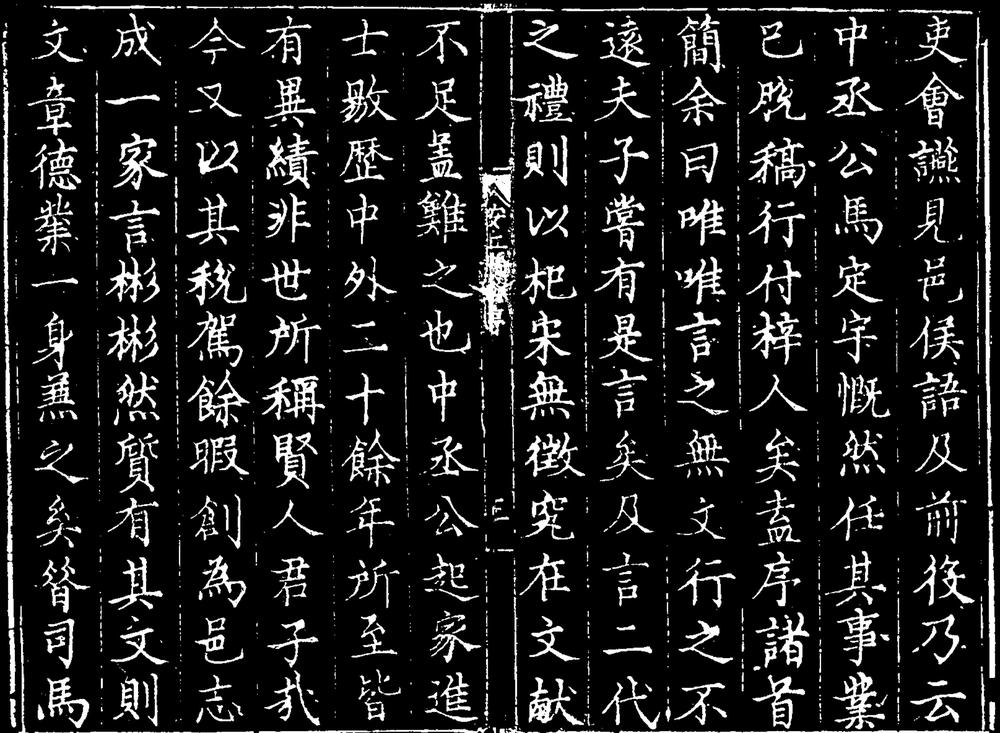 吏會讌見邑侯語及前後乃云
中丞公馬定宇慨然任其事業
已脫稿行付梓人矣盍序諸首
簡余曰唯唯言之無文行之不
遠夫子嘗有是言矣及言二代
之禮則以杞宋無徵究在文献
不足盖難之也中丞公起家進
士敭歴中外二十餘年所至皆
有異績非世所稱賢人君子㢤
今又以其稅駕餘暇創為邑志
成一家言彬彬然質有其文則
文章德業一身兼之矣昝司馬